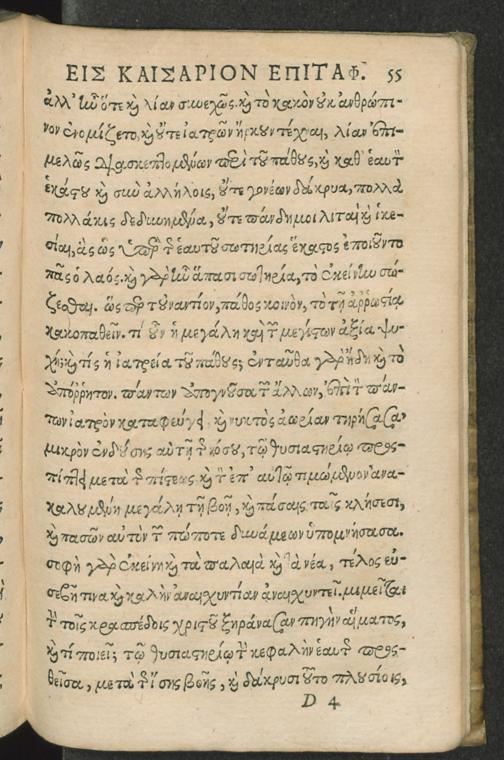 ΕΙΣ ΚΑΙΣΑΡΙΟΝ ΕΠΙΤΑΦ. 55
ἀλλ' ἦν ὅτε καὶ λίαν συνεχῶς. καὶ τὸ κακὸν οὐκ ἀνθρώπι-
νον ἐνομίζετο, καὶ οὔτε ἰατρῶν ἤρκουν τέχναι, λίαν ἐπι-
μελῶς διασκεπτομένων περὶ τοῦ πάθους, καὶ καθ' ἑαυτὸν
ἑκάστου καὶ σὺν ἀλλήλοις, οὔτε γονέων δάκρυα, πολλὰ
πολλάκις δεδυνημένα, οὔτε πάνδημοι λιταὶ καὶ ἱκε-
σίαι, ἃς ὡς ὑπὲρ τῆς ἑαυτοῦ σωτηρίας ἕκαστος ἐποιοῦντο
πᾶς ὁ λαός. καὶ γὰρ ἦν ἅπασι σωτηρία, τὸ ἐκείνην σώ-
ζεσθαι. ὥσπερ τοὐναντίον, πάθος κοινὸν, τὸ τῇ ἀῤῥωστίᾳ
κακοπαθεῖν. τί οὖν ἡ μεγάλη καὶ τῶν μεγίστων ἀξία ψυ-
χὴ; καὶ τίς ἡ ἰατρεία τοῦ πάθους; ἐνταῦθα γὰρ ἤδη καὶ τὸ
ἀπόῤῥητον. πάντων ἀπογνοῦσα τῶν ἄλλων, ἐπὶ τὸν πάν-
των ἰατρὸν καταφεύγει. καὶ νυκτὸς ἀωρίαν τηρήσασα
μικρὸν ἐνδούσης αὐτῇ τῆς νόσου, τῷ θυσιαστηρίῳ προς-
πίπτει μετὰ τῆς πίστεως. καὶ τὸν ἐπ' αὐτῷ τιμώμενον ἀνα-
καλουμένη μεγάλῃ τῇ βοῇ, καὶ πάσαις ταῖς κλήσεσι,
καὶ πασῶν αὐτὸν τῶν πώποτε δυνάμεων ὑπομνήσασα.
σοφὴ γὰρ ἐκείνη καὶ τὰ παλαιὰ καὶ τὰ νέα, τέλος εὐ-
σεβῆ τινα καὶ καλὴν ἀναισχυντίαν ἀναισχυντεῖ. μιμεῖται
τὴν τοῖς κρασπέδοις χριστοῦ ξηράνασαν πηγὴν αἵματος,
καὶ τί ποιεῖ; τῷ θυσιαστηρίῳ τὴν κεφαλὴν ἑαυτῆς προς-
θεῖσα, μετὰ τῆς ἴσης βοῆς, καὶ δάκρυσι τοῦτο πλουσίοις,
D 4